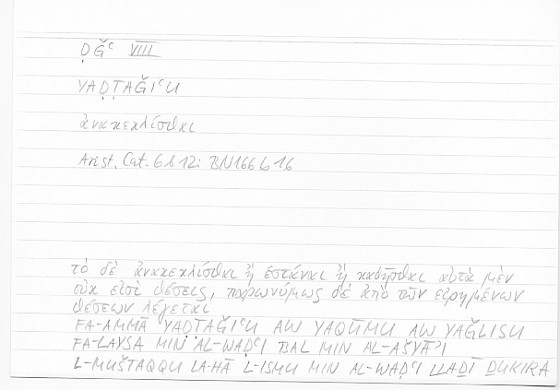 ḌǦʿ VIII
YAḌṬAǦIʿU
ἀνακεκλίσθαι
Arist. Cat. 6 b 12: BN 166 b 16
τὸ δὲ ἀνακεκλίσθαι ἢ ἑστάναι ἢ καθῆσθαι αὐτὰ μὲν
οὐκ εἰσὶ θέσεις, παρωνύμως δὲ ἀπὸ τῶν εἰρημένων
θέσεων λέγεται
FA-AMMĀ YAḌṬAǦIʿU AW YAQŪMU AW YAǦLISU
FA-LAYSA MIN AL-WAḌʿI BAL MIN AL-AŠYĀʾI
L-MUŠTAQQU LA-HĀ L-ISMU MIN AL-WAḌʿI LLAḎĪ ḎUKIRA